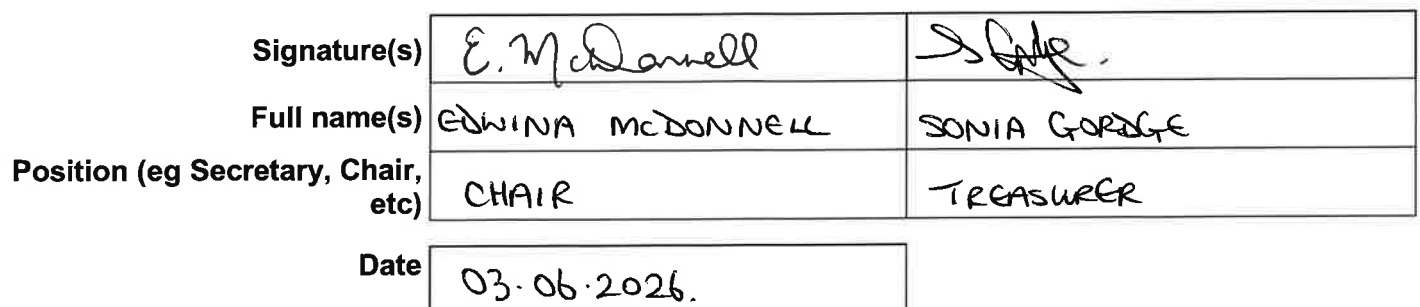 Signature(s) E. McDonnell
Full name(s) EDWINA MCDONNELL SONIA GORDGE
Position (eg Secretary, Chair,
etc) CHAIR TREASURER
Date 03.06.2026.